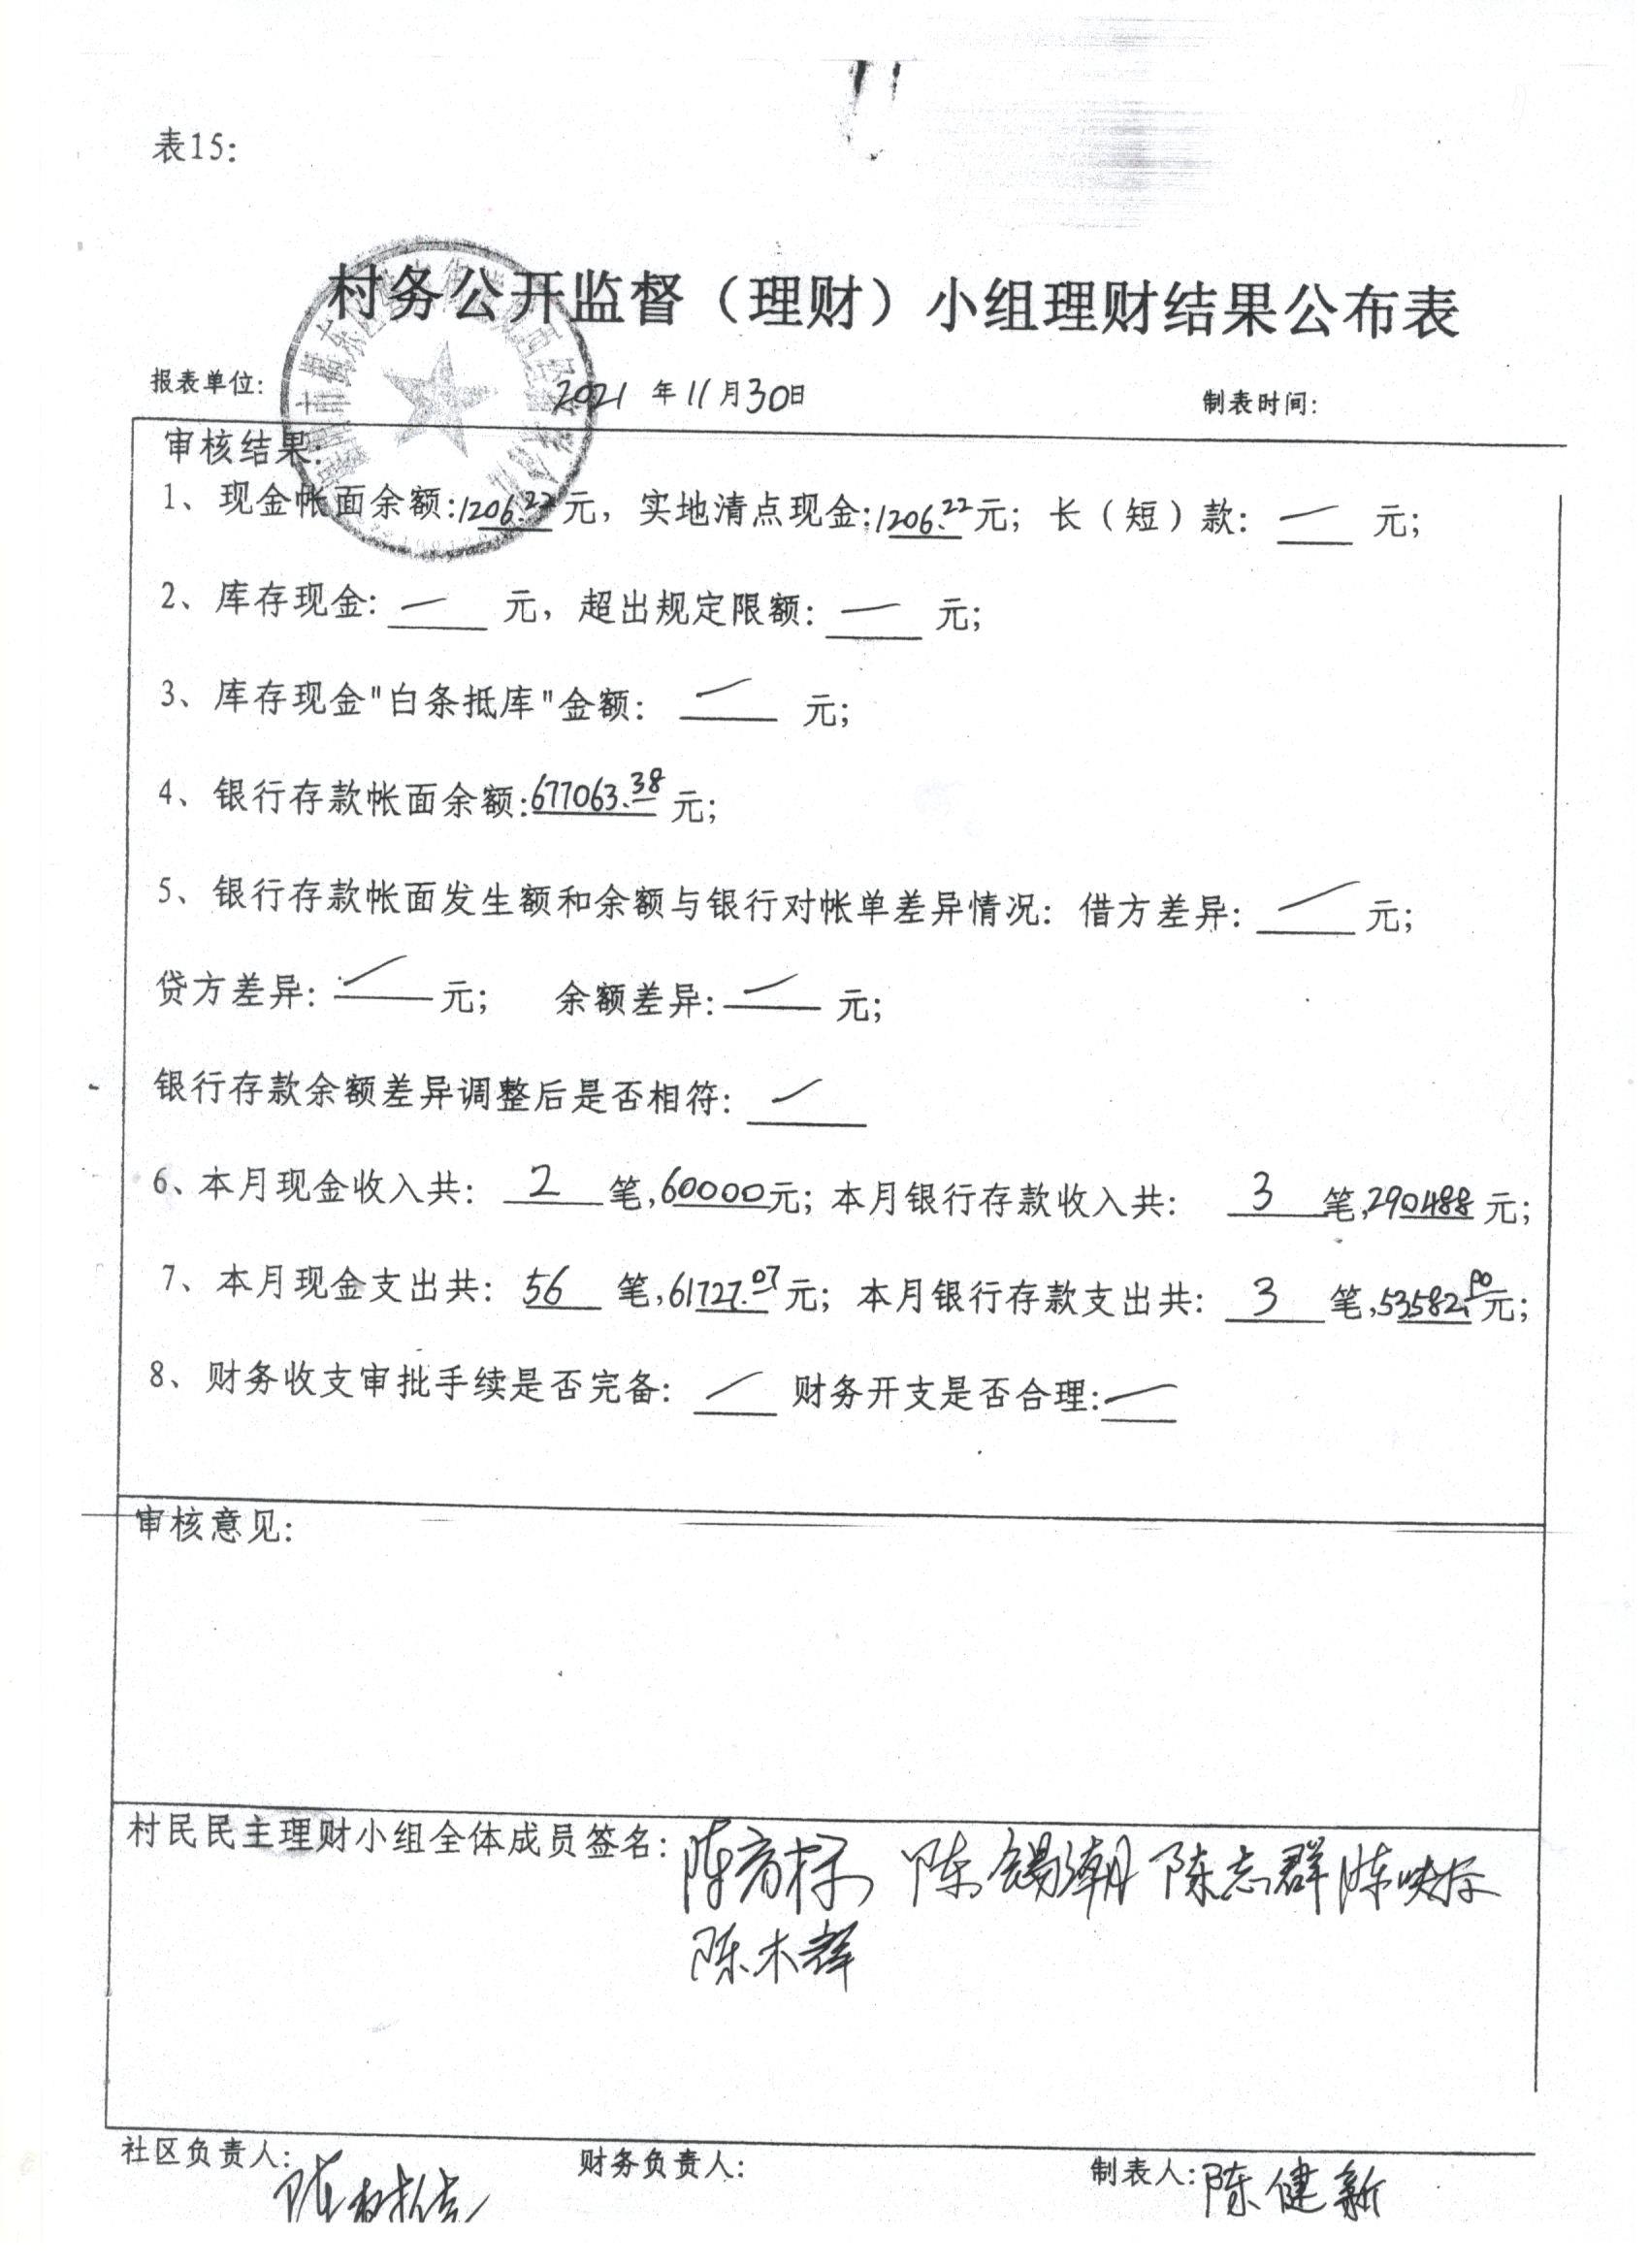 表15:
村务公开监督（理财）小组理财结果公布表
报表单位: 2021 年 11 月 30 日 制表时间:
审核结果:
1、现金帐面余额:1206.22元，实地清点现金:1206.22元；长（短）款: — 元；
2、库存现金: — 元，超出规定限额: — 元；
3、库存现金"白条抵库"金额: — 元；
4、银行存款帐面余额:677063.38元；
5、银行存款帐面发生额和余额与银行对帐单差异情况：借方差异: — 元；
贷方差异: — 元； 余额差异: — 元；
银行存款余额差异调整后是否相符: —
6、本月现金收入共: 2 笔,60000元；本月银行存款收入共: 3 笔,290488元；
7、本月现金支出共: 56 笔,61727.07元；本月银行存款支出共: 3 笔,53582.00元；
8、财务收支审批手续是否完备: — 财务开支是否合理: —
审核意见:
村民民主理财小组全体成员签名: 陈锡潮 陈志群
陈木群
社区负责人: 财务负责人: 制表人:陈健新